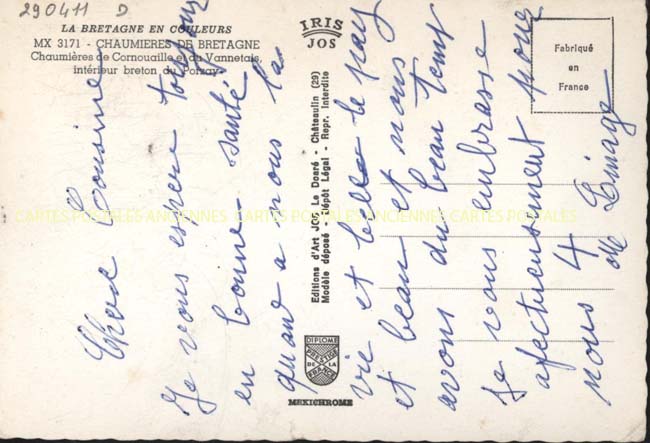 290411 D
LA BRETAGNE EN COULEURS
MX 3171 - CHAUMIERES DE BRETAGNE
Chaumières de Cornouaille et du Vannetais,
intérieur breton du Porzay
IRIS
JOS
Fabriqué
en
France
Editions d'Art JOS - Le Doaré - Châteaulin (29)
Modèle déposé - Dépôt Légal - Repr. Interdite
DIPLOME
PRESTIGE
DE LA
FRANCE
MEXICHROME
Cher Cousine
Je vous espere toujours
en bonne santé
quand a nous la
vie et belle le pay
et beau et nous
avons du beau temp
Je vous embrasse
afectueusement pour
nous 4
CARTES POSTALES ANCIENNES CARTES POSTALES ANCIENNES CARTES POSTALES